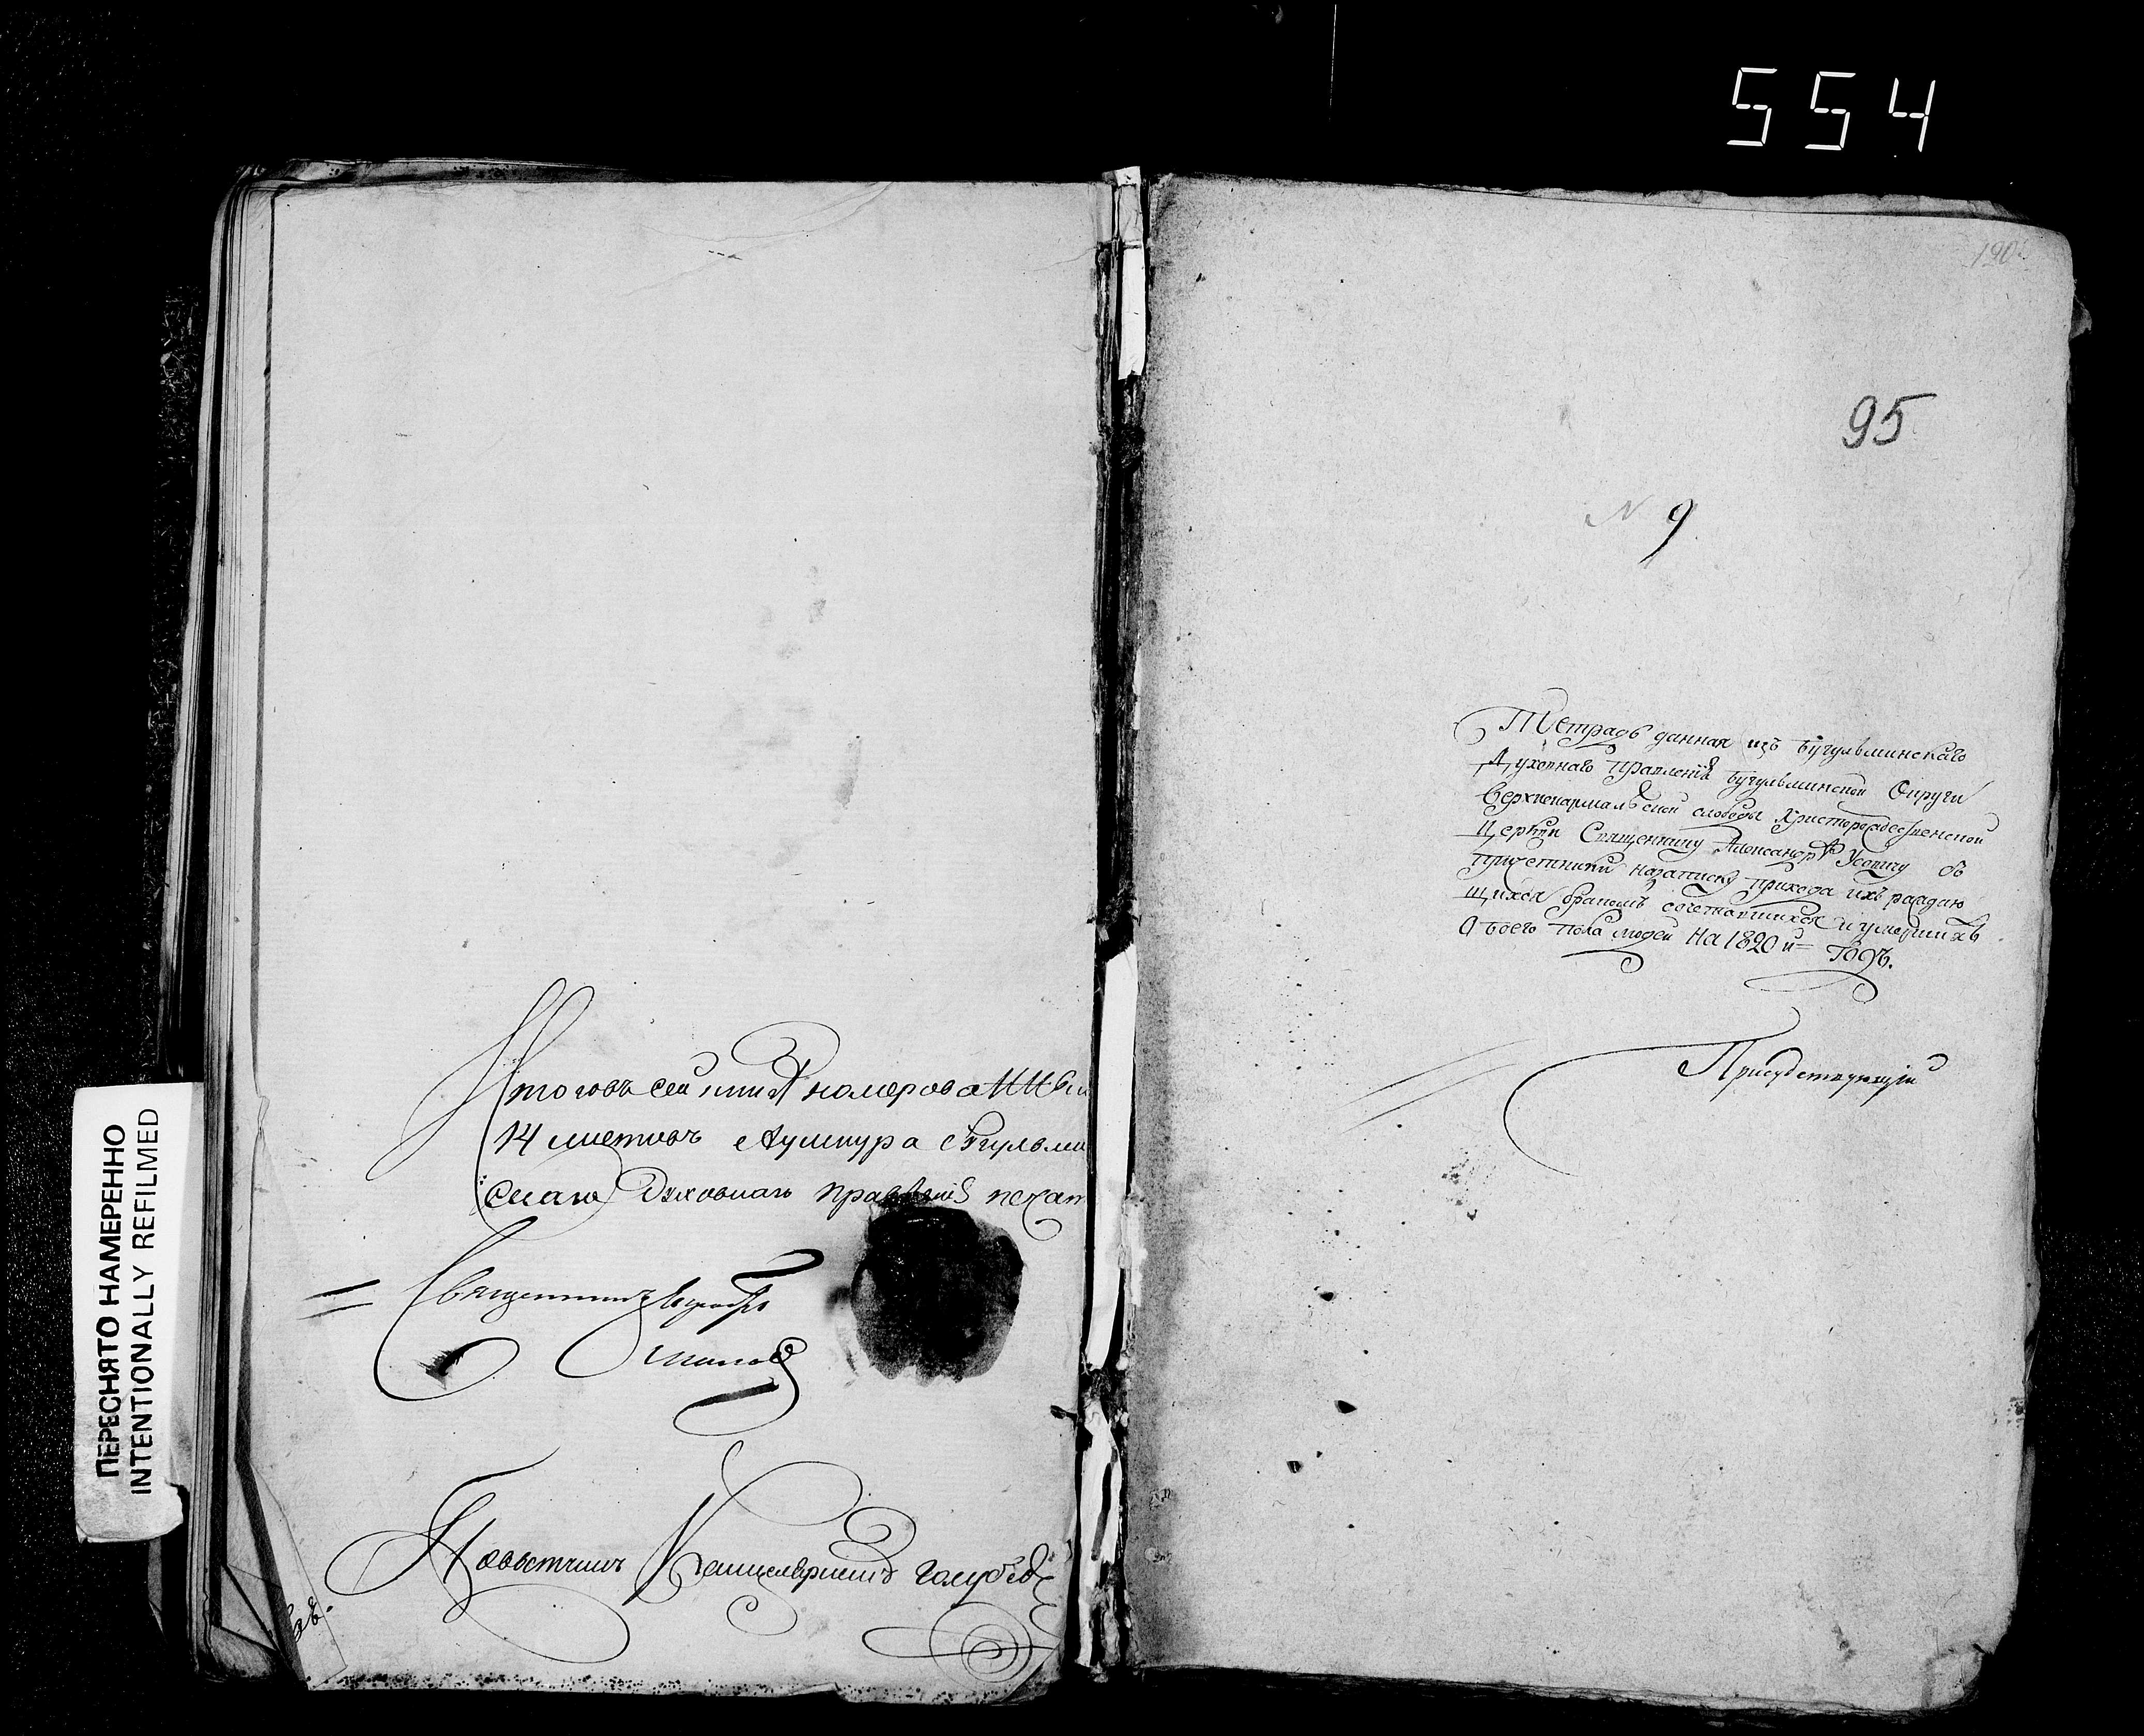 554
ПЕРЕСНЯТО НАМЕРЕННО
INTENTIONALLY REFILMED
Итого въ сей номерова
14 листовъ
скаго Духовнаго правленія печат
Священникъ
Повытчикъ Канцеляристъ Голубев
190
95
N 9
Тетрадь данная изъ Бугульминскаго
Духовнаго Правленія Бугульминской Округи
Верхнекармальской слободы Христорождественской
Церкви Священнику Александру Усовичу съ
причетники на записку прихода ихъ раждаю
щихся бракомъ сочетавшихся и умершихъ
Обоего пола людей На 1820 й = Годъ.
Присудствующій